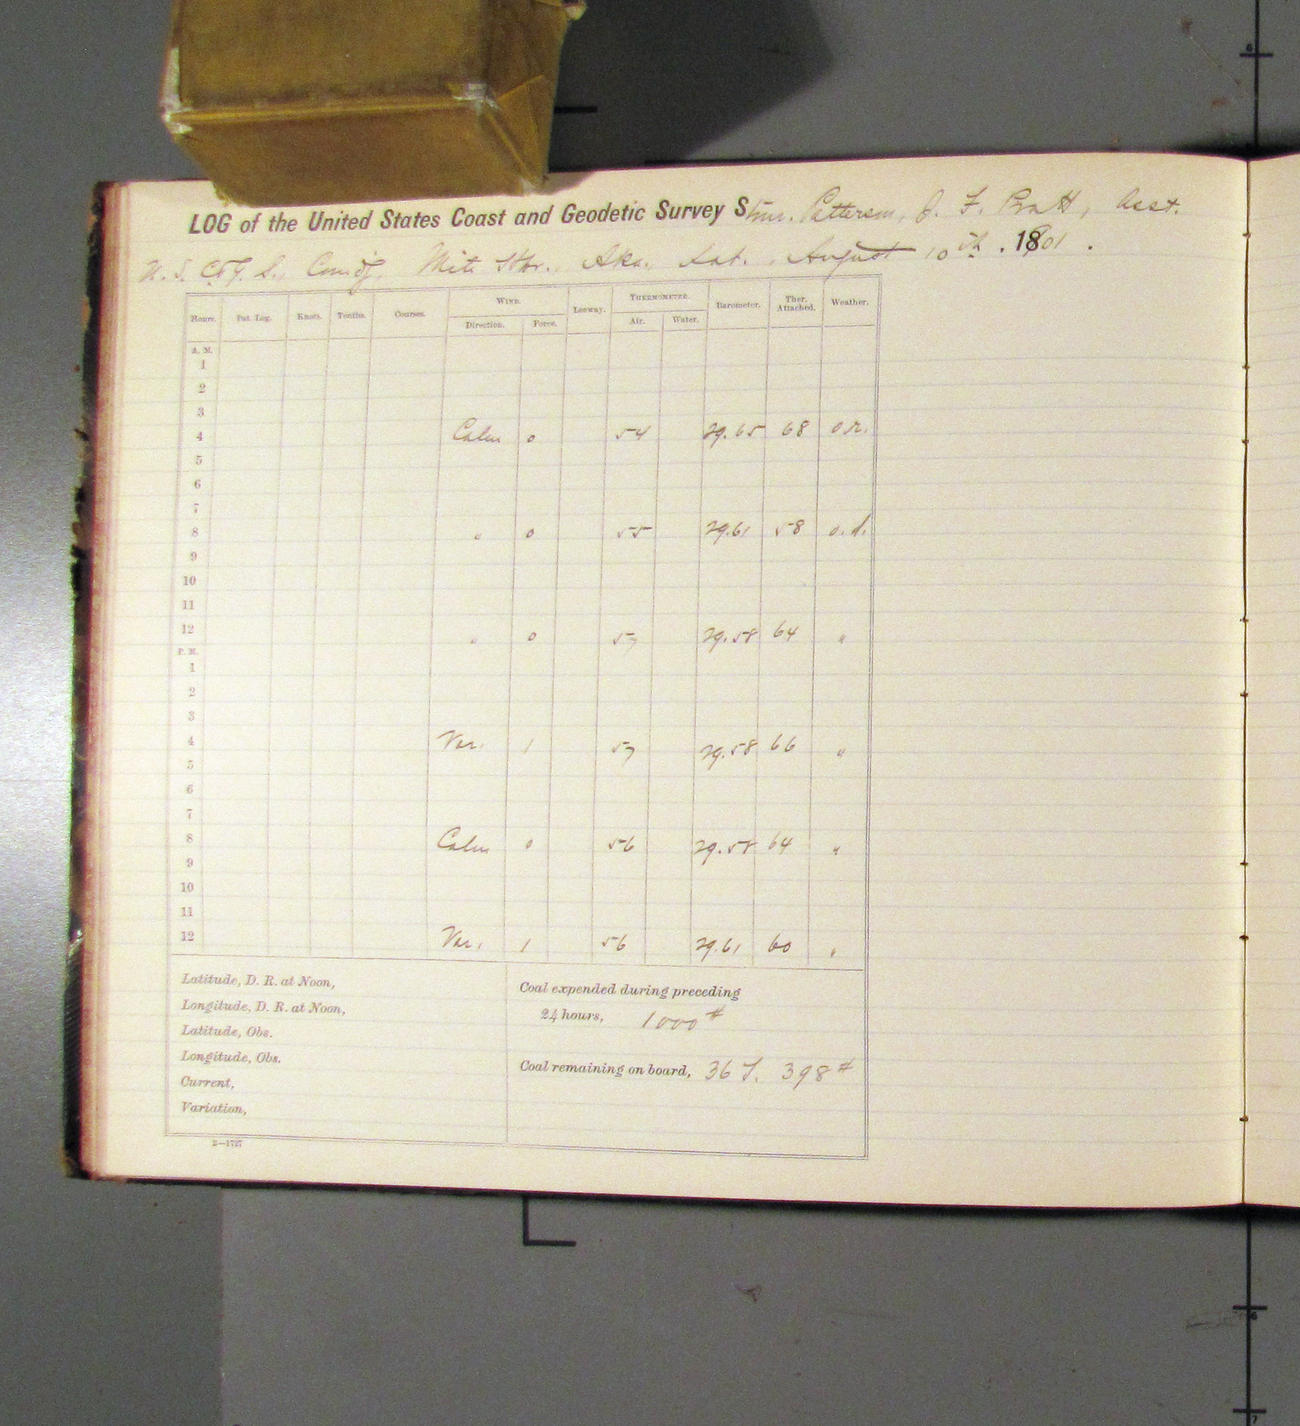 LOG of the United States Coast and Geodetic Survey Stmr. Patterson, J. F. Pratt, Asst.
U.S. C.&G. S., Comd'g. Hbr., Aka. Sat., August 10th. 1801.
Hours. Pat. Log. Knots. Tenths. Courses. WIND. Leeway. THERMOMETER. Barometer. Ther. Attached. Weather.
Direction. Force. Air. Water.
A. M.
1
2
3
4 Calm 0 54 29.65 68 o.r.
5
6
7
8 " 0 55 29.61 58 o.d.
9
10
11
12 " 0 57 29.58 64 "
P. M.
1
2
3
4 Var. 1 57 29.58 66 "
5
6
7
8 Calm 0 56 29.58 64 "
9
10
11
12 Var. 1 56 29.61 60 "
Latitude, D. R. at Noon,
Longitude, D. R. at Noon,
Latitude, Obs.
Longitude, Obs.
Current,
Variation,
Coal expended during preceding
24 hours, 1000 #
Coal remaining on board, 36 T. 398 #
2—1727
6
6
7